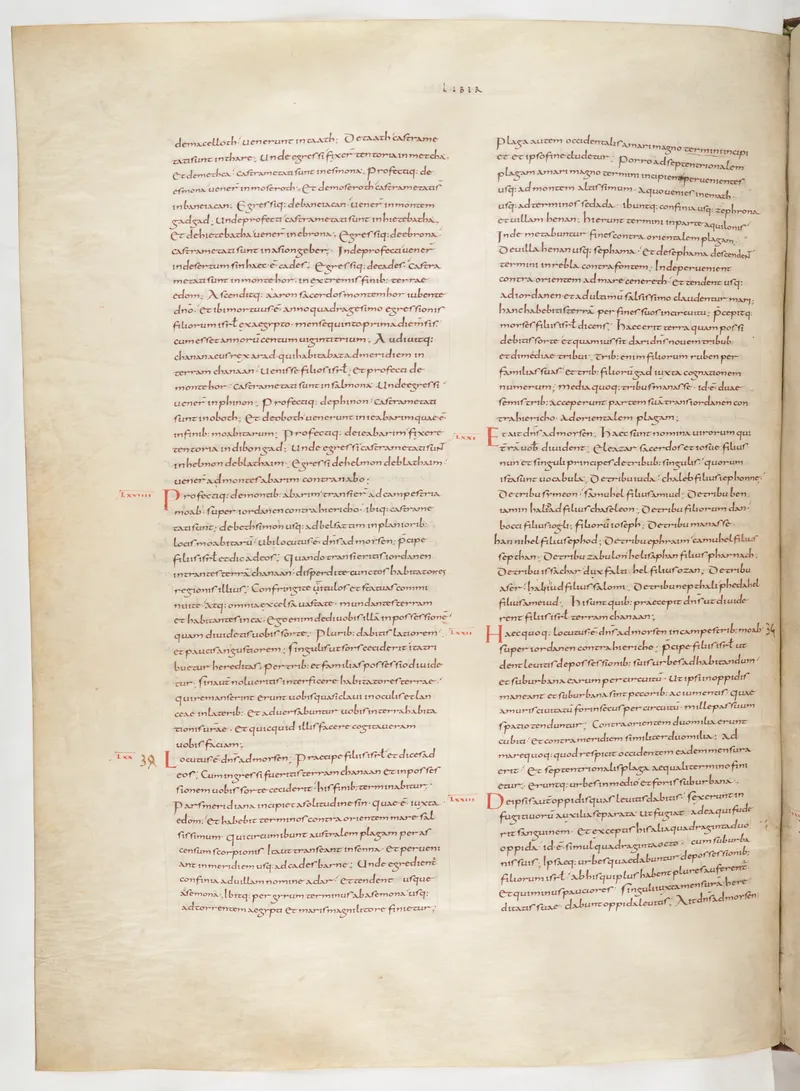 LIBER
demaceloth; uenerunt in taath; De taath castrame
tati sunt in thare; Unde egressi fixer tentoria in metcha.
Et de metcha castrametati sunt in esmona; Profectiq: de
esmona uener in moseroth; Et de moseroth castrametati
in baneiacan; Egressiq: de baneiacan uener in montem
gadgad; Unde profecti castrametati sunt in hietebatha.
Et de hietebatha uener in ebrona; Egressiq: de ebrona
castrametati sunt in asiongeber; Inde profecti uener
in desertum sin haec ē cades; Egressiq: de cades castra
metati sunt in monte hor in extremis finib: terrae
edom; Ascenditq: aaron sacerdos montem hor iubente
dno et ibi mortuus ē anno quadragesimo egressionis
filiorum isrl ex aegypto mense quinto prima die mensis
cum esset annorū centum uiginti trium; Audiuitq:
chananeus rex arad qui habitabat ad meridiem in
terram chanaan uenisse filios isrl; Et profecti de
monte hor castrametati sunt in salmona; Unde egressi
uener in phinon; Profectiq: de phinon castrametati
sunt in oboth; Et de oboth uenerunt in ieabarim quae ē
in finib: moabitarum; Profectiq: de ieabarim fixere
tentoria in dibongad; Unde egressi castrametati sunt
in helmon deblathaim; Egressi de helmon deblathaim
uener ad montes abarim contra nabo;
LXVIIII Profectiq: de montib: abarim transier ad campestria
moab super iordanen contra hiericho ibiq: castrame
tati sunt; de bethsimon usq: ad belsattim in planiorib:
locis moabitarū ubi locutus ē dns ad moysen; Pcipe
filiis isrl et dic ad eos; Quando transieritis iordanen
intrantes terrā chanaan disperdite cunctos habitatores
regionis illius; Confringite titulos et statuas commi
nuite atq: omnia excelsa uastate mundantes terram
et habitantes in ea; Ego enim dedi uobis illā in possessionē
quam diuidetis uobis sorte; Plurib: dabitis latiorem
et paucis angustiorem; Singulis ut sors ceciderit ita tri
buetur hereditas; per trib: et familias possessio diuide
tur; sin autē nolueritis interficere habitatores terrae
qui remanserint erunt uobis quasi claui in oculis et lan
ceae in laterib: et aduersabuntur uobis in terra habita
tionis urae Et quicquid illis facere cogitaueram
uobis faciam;
LXX Locutus ē dns ad moysen; Praecipe filiis isrl et dices ad
eos; Cum ingressi fueritis terram chanaan et in posses
sionem uobis sorte ceciderit his finib: terminabitur
Pars meridiana incipiet a solitudine sin quae ē iuxta
edom; et habebit terminos contra orientem mare sal
sissimum qui circumibunt australem plagam per as
censum scorpionis ita ut transeant in senna et perueni
ant in meridiem usq: ad cadesbarne; Unde egredient
confinia ad uillam nomine adar et tendent usque
asemona. Ibitq: per gyrum terminus ab asemona usq:
ad torrentem aegypti et maris magni litore finietur;
Plaga autem occidentalis a mari magno termini incipi
et et ipso fine cludetur; Porro ad septentrionalem
plagam a mari magno termini incipient peruenientes
usq: ad montem altissimum a quo uenies in emath
usq: ad terminos sedada ibuntq: confinia usq: zephrona
et uillam henan; hi erunt termini in parte aquilonis
Inde metabuntur fines contra orientalem plagam;
De uilla henan usq: sephama et de sephama descendent
termini in rebla contra fontem; Inde peruenient
contra orientem ad mare cenereth et tendent usq:
ad iordanen et ad ultimū salsissimo claudentur mari;
hanc habebitis terrā per fines suos in circuitu; Pcepitq:
moyses filiis isrl dicens; Haec erit terra quam possi
debitis sorte et quam iussit dari dns nouem tribub:
et dimediae tribui; Trib: enim filiorum ruben per
familias suas et trib: filiorū gad iuxta cognationem
numerum; media quoq: tribus manasse id ē duae
semis trib: acceperunt partem suā trans iordanen con
tra hiericho ad orientalem plagam;
LXXI Et ait dns ad moysen; Haec sunt nomina uirorum qui
terrā uob diuident; eleazar sacerdos et iosue filius
nun et singuli principes de tribub: singulis quorum
ista sunt uocabula; De tribu iuda chaleb filius iephonne;
De tribu simeon samuhel filius amiud; De tribu ben
iamin helidad filius chaseleon; De tribu filiorum dan
bocci filius iogli; filiorū ioseph; De tribu manasse
hannihel filius ephod; De tribu ephraim camuhel filius
septhan; De tribu zabulon helisaphan filius pharnach;
De tribu issachar dux faltihel filius ozan; De tribu
aser hahiud filius salomi; De tribu nepthali phedahel
filius ameiud; Hi sunt quib: praecepit dns ut diuide
rent filiis isrl terram chanaan;
LXXII Haec quoq: locutus ē dns ad moysen in campestrib: moab
super iordanen contra hiericho; Pcipe filiis isrl ut
dent leuitis de possessionib: suis urbes ad habitandum
et suburbana earum per circuitū Ut ipsi in oppidis
maneant et suburbana sint pecorib: ac iumentis quae
a muris ciuitatū forinsecus per circuitū mille passuum
spatio tenduntur; Contra orientem duo milia erunt
cubita et contra meridiem similiter duo milia; Ad
mare quoq: quod respicit occidentem eadem mensura
erit et septentrionalis plaga aequali termino fini
etur; eruntq: urbes in medio et foris suburbana;
LXXIII De ipsis autē oppidis quae leuitis dabitis sex erunt in
fugitiuorū auxilia separata Ut fugiat ad ea qui fude
rit sanguinem et exceptis his alia quadraginta duo
oppida id ē simul quadraginta octo cum suburba
nis suis; Ipsaeq: urbes quae dabuntur de possessionib:
filiorum isrl ab his qui plus habent plures auferentr
et qui minus pauciores Singuli iuxta mensurā here
ditatis suae dabunt oppida leuitis; Ait dns ad moysen